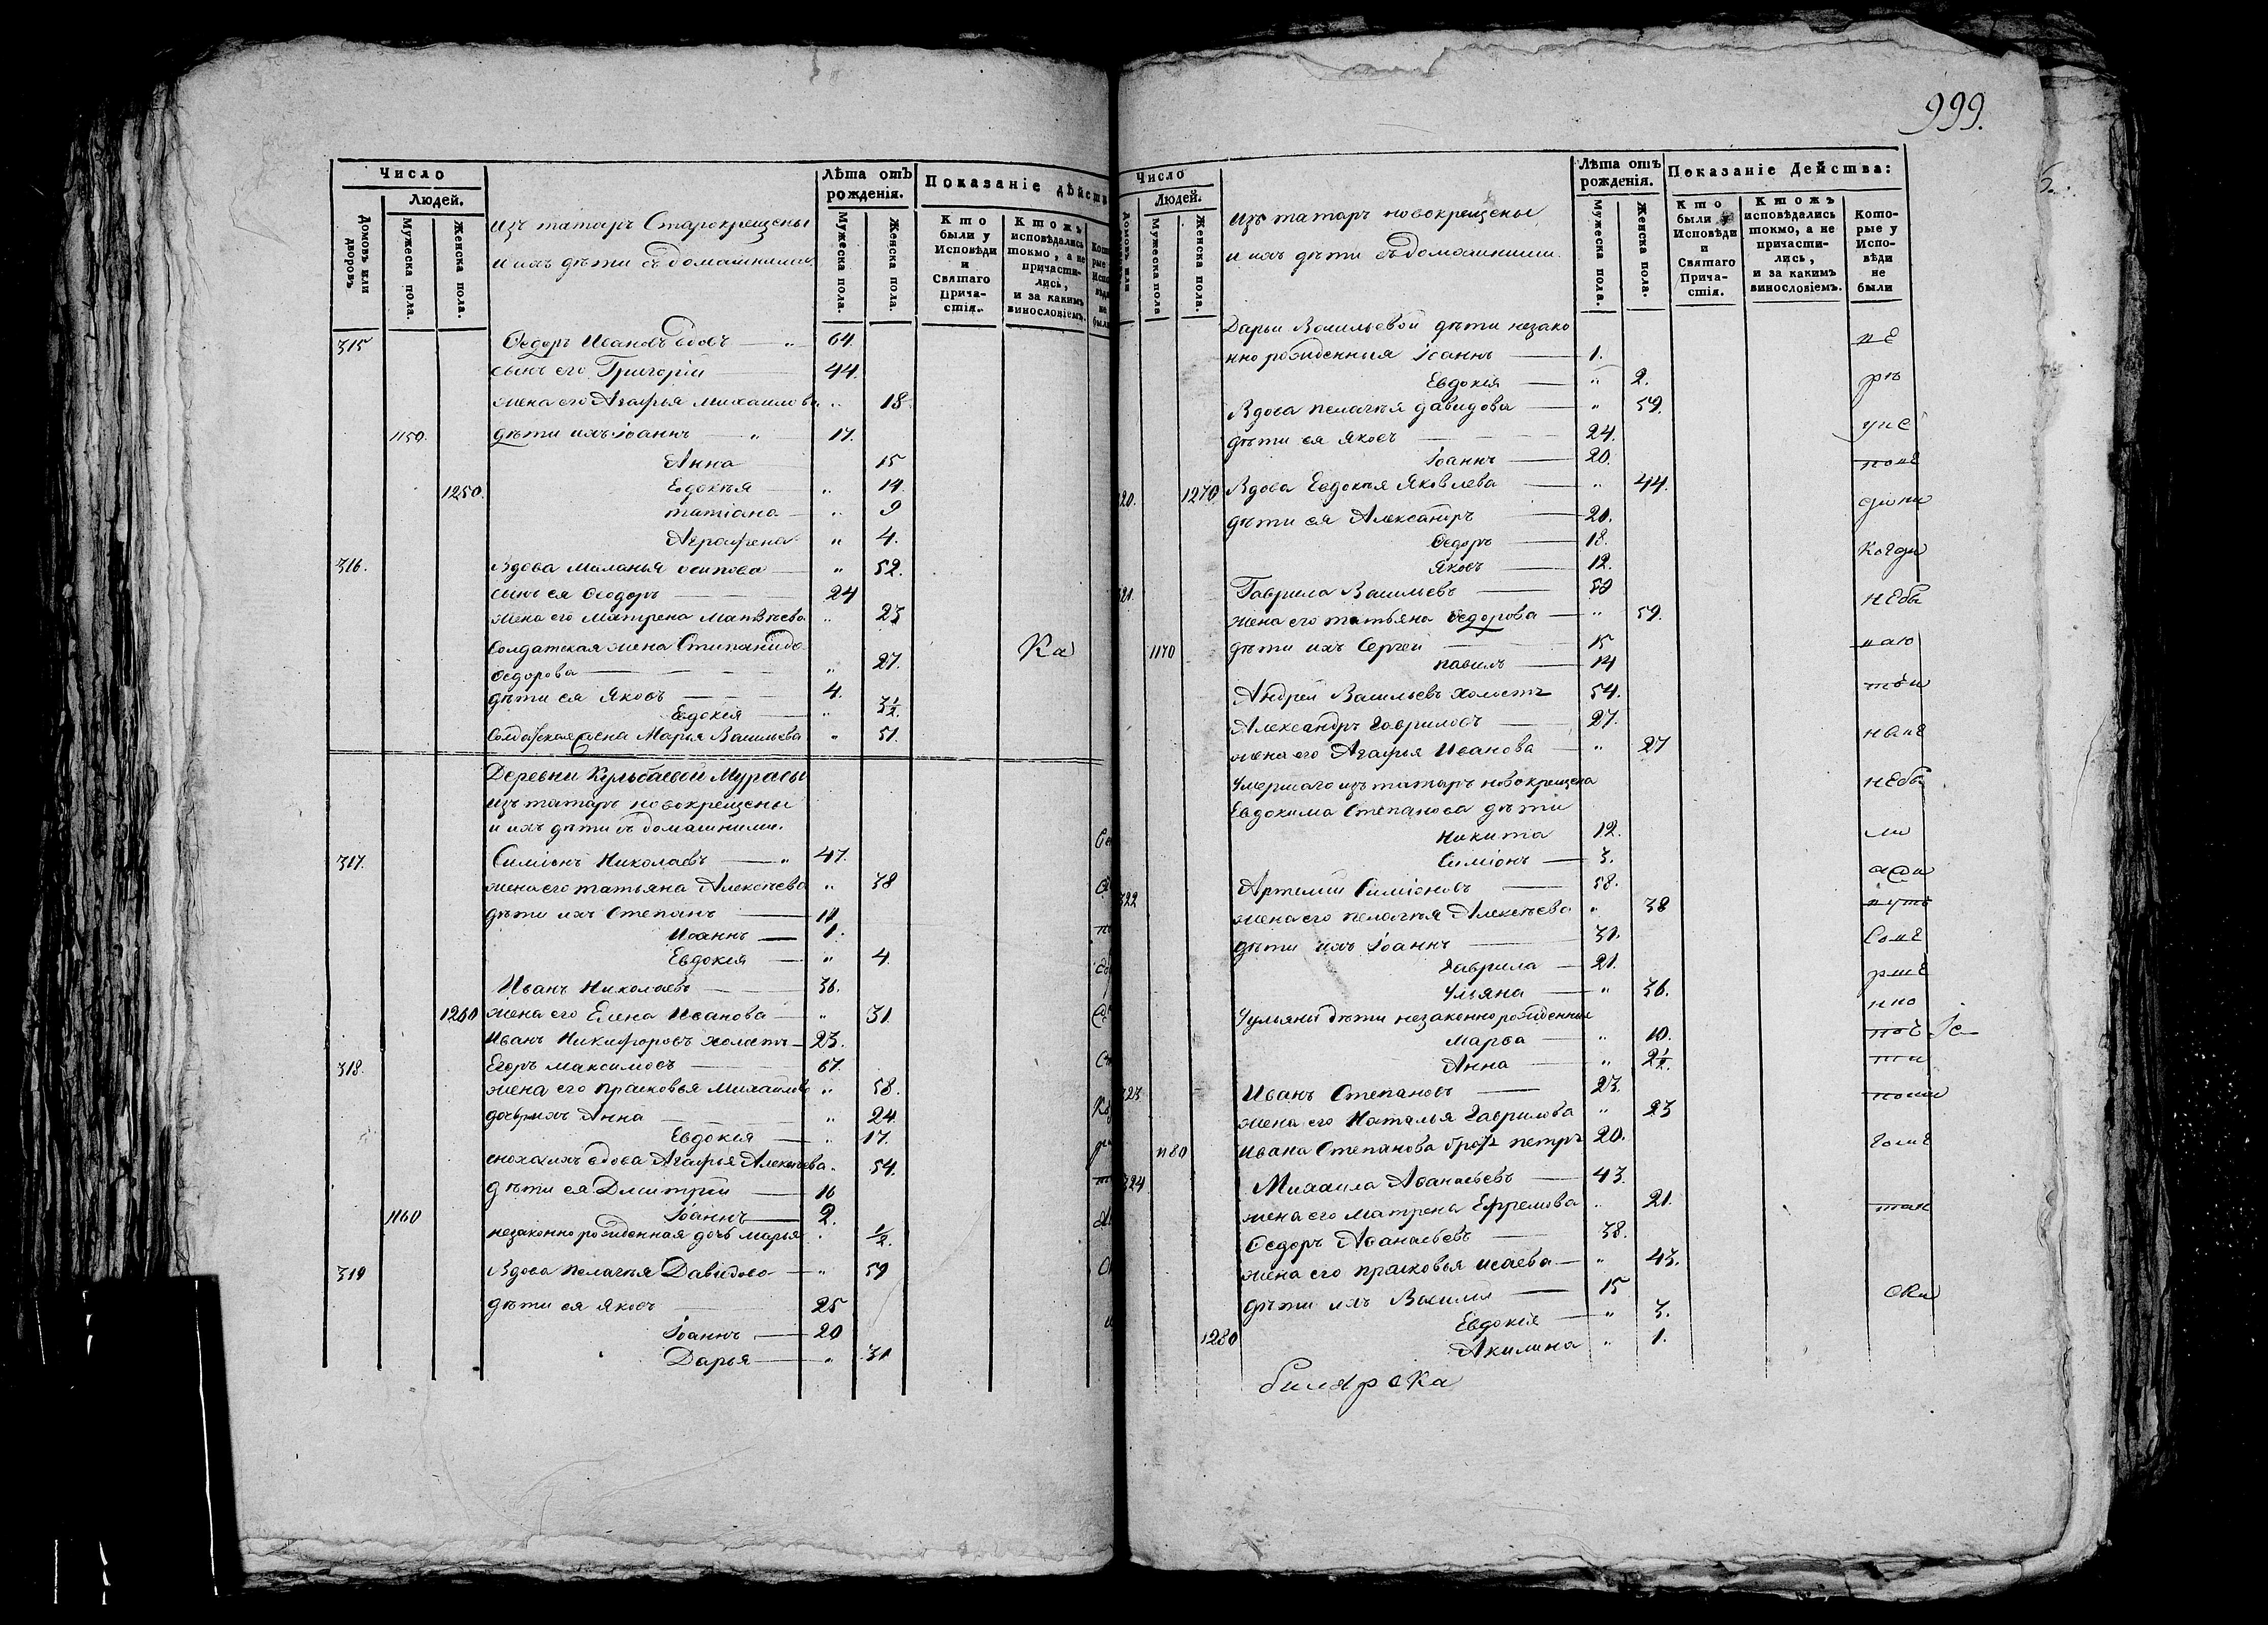 999.
Число
Людей.
Домовъ или дворовъ.
Мужеска пола.
Женска пола.
изъ татаръ Старокрещены
и ихъ дѣти съ домашними.
Лѣта отъ рожденія.
Мужеска пола.
Женска пола.
Показаніе дѣйств
Кто были у Исповѣди и Святаго Прича-стія.
Ктожъ исповѣдались токмо, а не причасти-лись, и за какимъ винословіемъ.
315 Ѳедоръ Ивановъ вдовъ — 64.
сынъ его Григорій 44.
жена его Агафья Михаилова " 18.
1150. дѣти ихъ Іоаннъ — " 17.
Анна 15
1250. Евдокѣя " 14
татіана " 9
Аграфена " 4.
316. Вдова Маланья осипова — " 52.
сынъ ея Ѳеодоръ 24
жена его Матрена Матвѣева " 23
Солдатская жена Степанида
Ѳедорова — " 27.
Ка
дѣти ея Яковъ 4.
Евдокея — " 3½.
Солдатская жена Марья Васильева " 51.
Деревни Кульбаевой Мурасы
изъ татаръ новокрещены
и ихъ дѣти съ домашними.
317. Симіонъ Николаевъ — " 47.
жена его татьяна Алексѣева " 38
дѣти ихъ Степанъ —
Иоаннъ — 1.
Евдокея — " 4.
Иванъ Николаевъ — 36.
1260 жена его Елена Иванова — " 31
Иванъ Никифоровъ холостъ — 23.
318. Егоръ максимовъ 67.
жена его прасковья Михаилова " 58.
дочь ихъ Анна " 24
Евдокея — " 17.
сноха ихъ вдова Агафья Алексѣева " 54.
дѣти ея Дмитрій — 16
1160 Іоаннъ — 2.
незаконно рожденная дочь марья " ½.
319 Вдова пелагѣя Давыдова — " 59
дѣти ея Яковъ 25
Іоаннъ — 20
Дарья — " 31
Число
Людей.
Мужеска пола
Женска пола.
изъ татаръ новокрещены
и ихъ дѣти съ домашними.
Лѣта отъ рожденія.
Мужеска пола.
Женска пола.
Показаніе Действа:
Кто были у Исповѣди и Святаго Прича-стія.
Ктожъ исповѣдались токмо, а не причасти-лись, и за какимъ винословіемъ.
Кото-рые у Испо-вѣди не были
Дарьи Васильевой дѣти незако
нно рожденния Іоаннъ — 1.
Евдокея — " 2.
Вдова пелагѣя давидова — " 59.
дѣти ея Яковъ 24.
Іоаннъ — 20.
20. 1270 Вдова Евдокѣя Яковлева — " 44.
дѣти ея Александръ 20.
Ѳедоръ — 18.
Яковъ — 12.
21. Гаврила Васильевъ —
жена его татьяна Ѳедорова — " 59.
1170 дѣти ихъ Сергей 15
павилъ — 14
Андрей Васильевъ холостъ 54.
Александръ Гавриловъ — 27.
жена его Агафья Иванова — " 27
Умершаго изъ татаръ новокрещена
Евдокима Степанова дѣти
Никита 12.
Симіонъ — 3.
322 Артемій Симіоновъ — 58.
жена его пелагѣя Алексѣева " 38
дѣти ихъ Іоаннъ — 31.
Гаврила — 21.
Ульяна — " 36.
Уульяны дѣти незаконнорожденныя
Марѳа — " 10.
Анна — " 2½.
323 Иванъ Степановъ — 23.
жена его Наталья Гаврилова " 23
1180 Ивана Степанова братъ петръ 20.
324 Михаила Аѳанасьевъ — 43.
жена его матрена Ефремова " 21.
Ѳедоръ Аѳанасьевъ — 38.
жена его прасковья исаева — " 43.
дѣти ихъ Василій — 15
Евдокея — " 3.
1280 Акилина " 1.
билярска